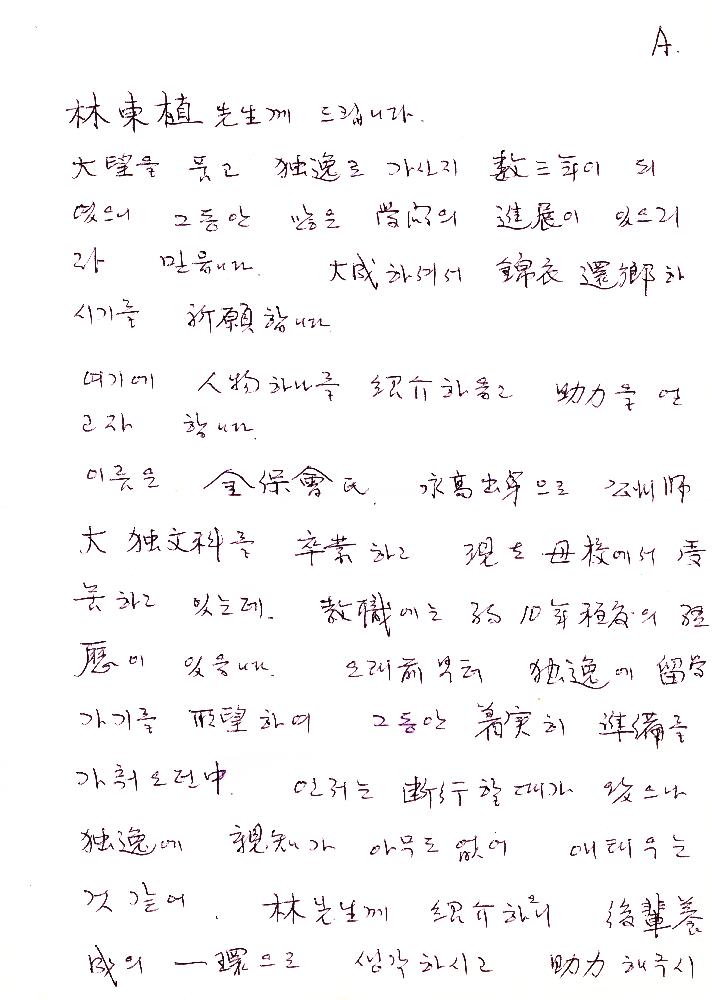 A.
林東植 先生께 드립니다.
大望을 품고 独逸로 가신지 数三年이 되
였으니 그동안 많은 学問의 進展이 있으리
라 믿읍니다. 大成하셔서 錦衣還鄉하
시기를 祈願합니다
여기에 人物하나를 紹介하옵고 助力을 얻
고자 합니다.
이름은 金保會氏. 永高出身으로 公州師
大 独文科를 卒業하고 現在 母校에서 勤
務하고 있는데. 教職에는 弱 10年程度의 経
歷이 있읍니다. 오래前부터 独逸에 留学
가기를 願望하여 그동안 着実히 準備를
가춰오던中. 인저는 断行할때가 왔으나
独逸에 親知가 아무도 없어 애태우는
것 같어. 林先生께 紹介하오니 後輩養
成의 一環으로 생각하시고 助力해주시